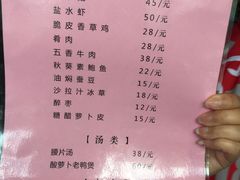 45/元
盐水虾 50/元
脆皮香草鸡 28/元
肴肉 28/元
五香牛肉 38/元
秋葵素鲍鱼 22/元
油焖蚕豆 15/元
沙拉汁冰草 18/元
醉枣 12/元
糖醋萝卜皮 15/元
【汤类】
腰片汤 38/元
酸萝卜老鸭煲 50/元